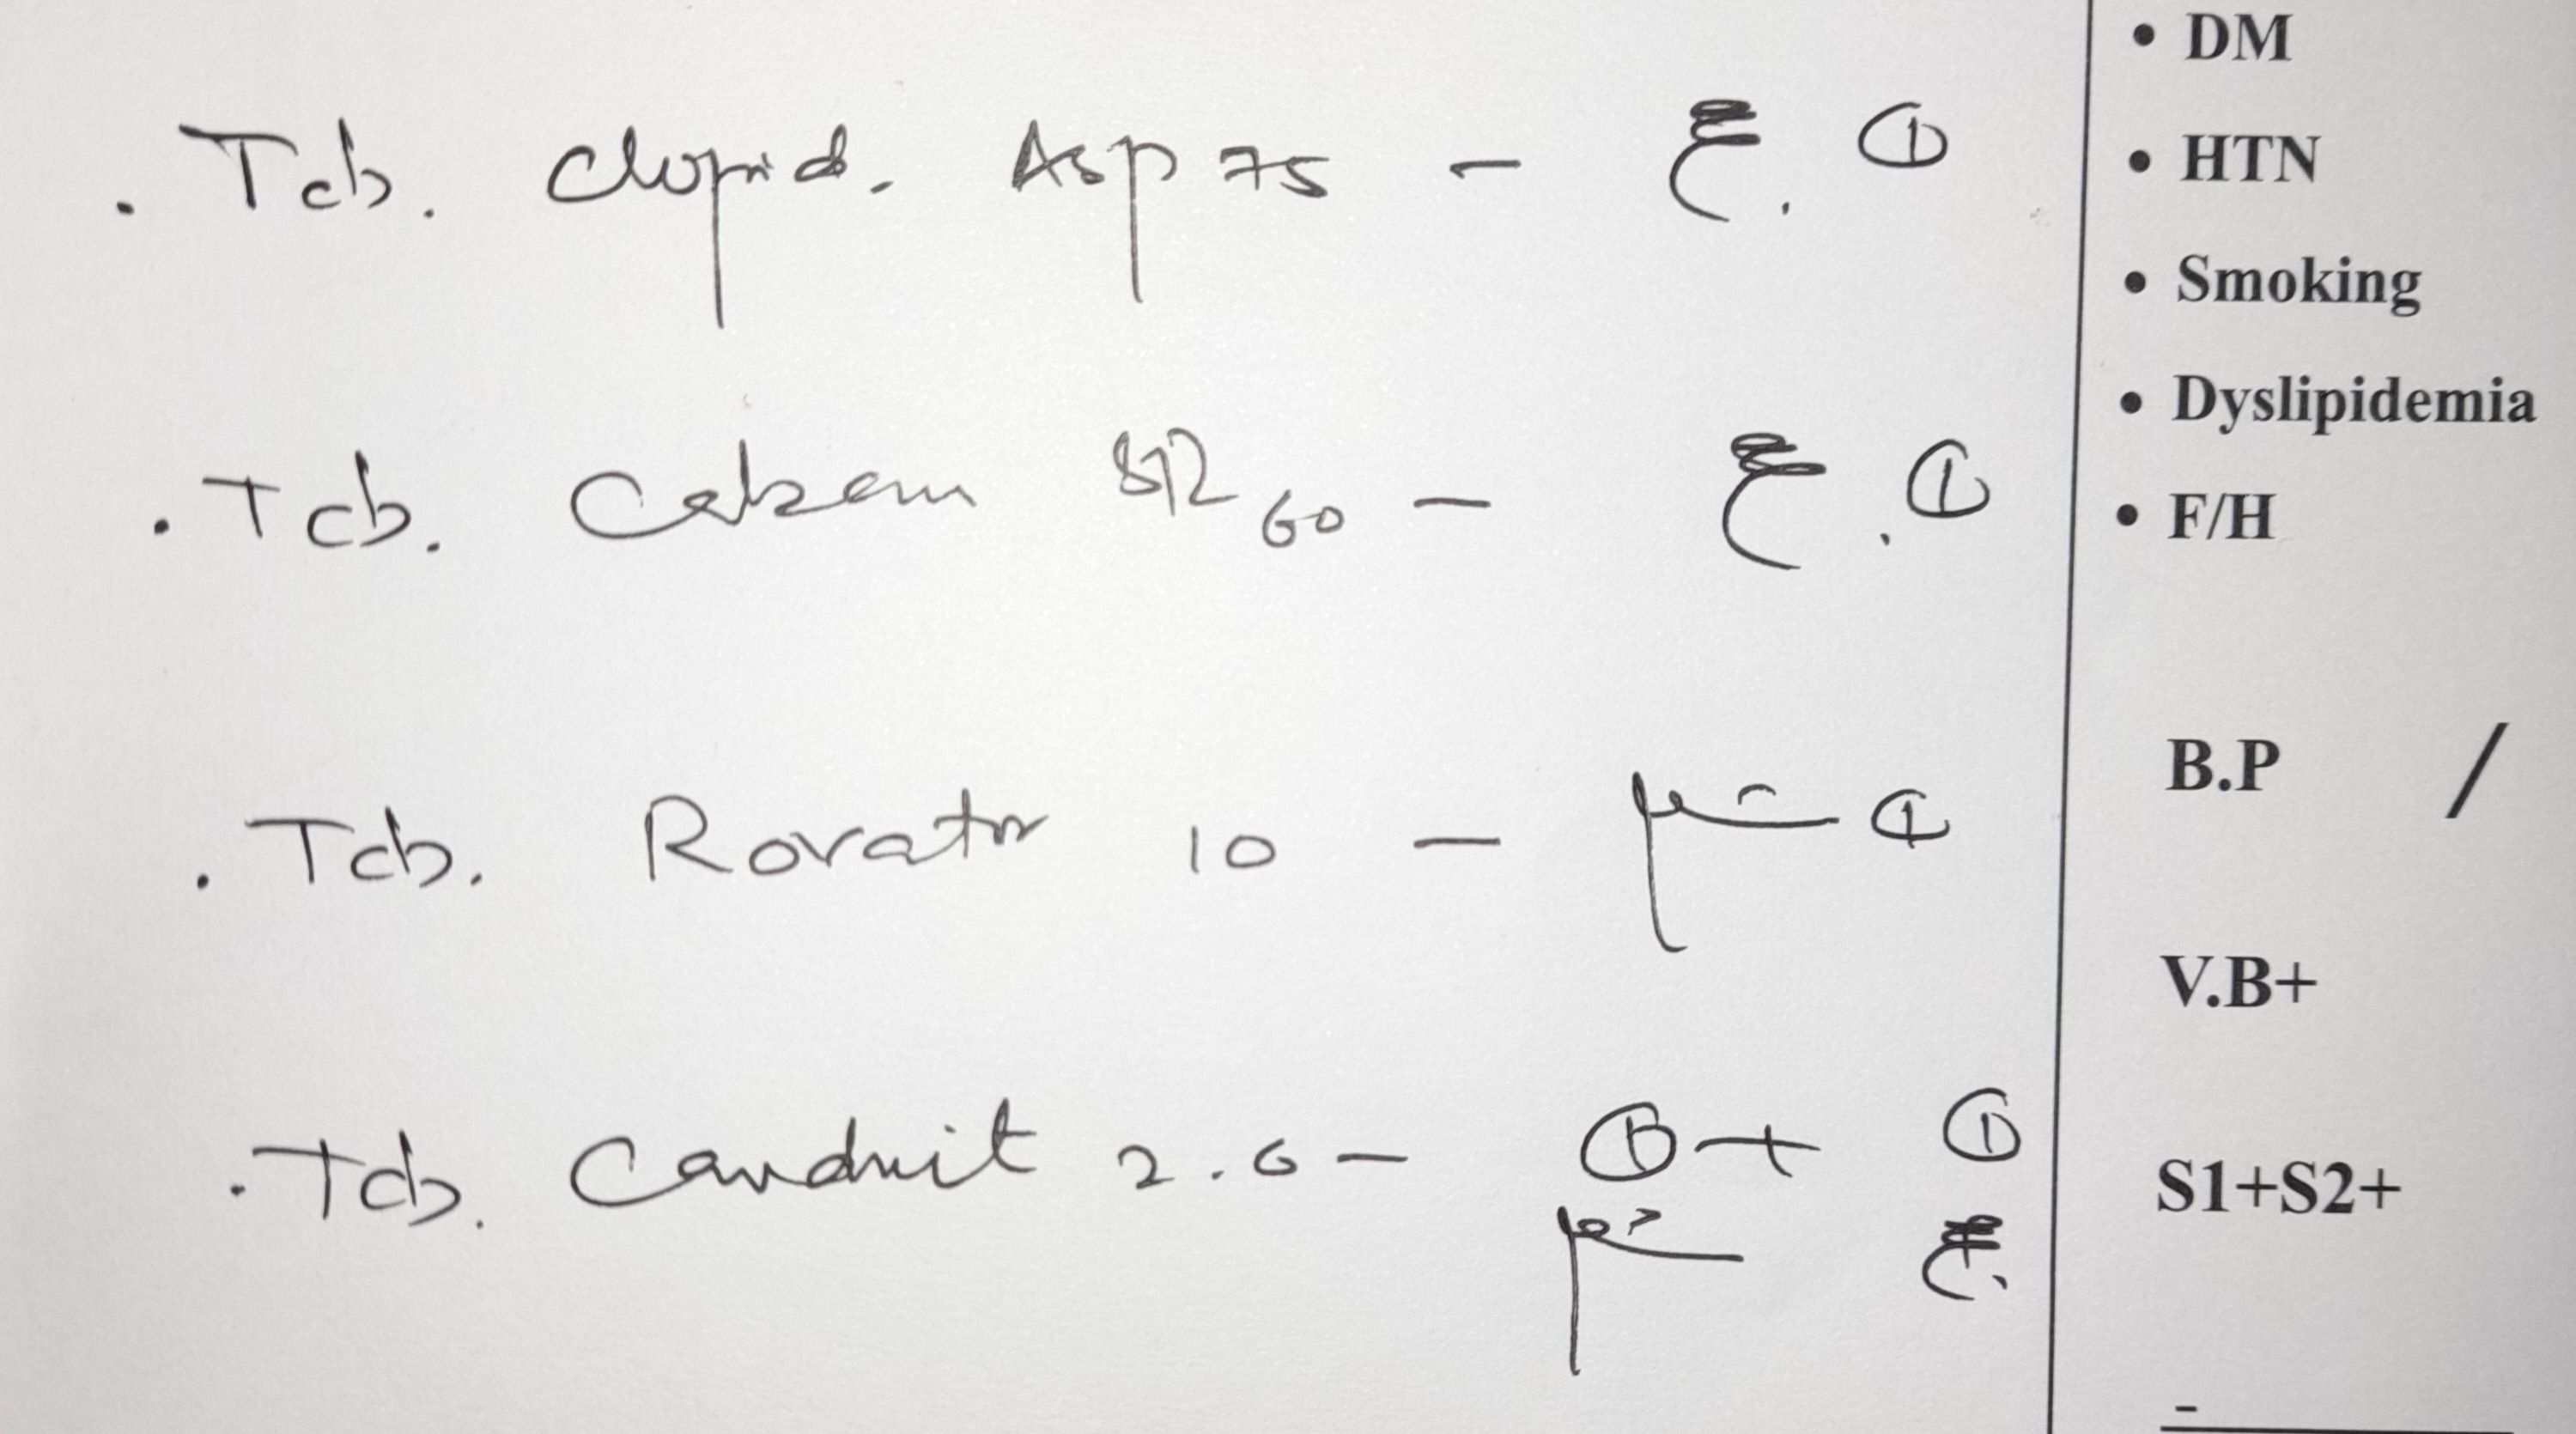 . Tab. Clopid. Asp 75 - صبح ①
. Tab. Calzem SR 60 - صبح ①
. Tab. Rovator 10 - ①
. Tab. Conduit 2.6 - ① + ①
• DM
• HTN
• Smoking
• Dyslipidemia
• F/H
B.P /
V.B+
S1+S2+
-